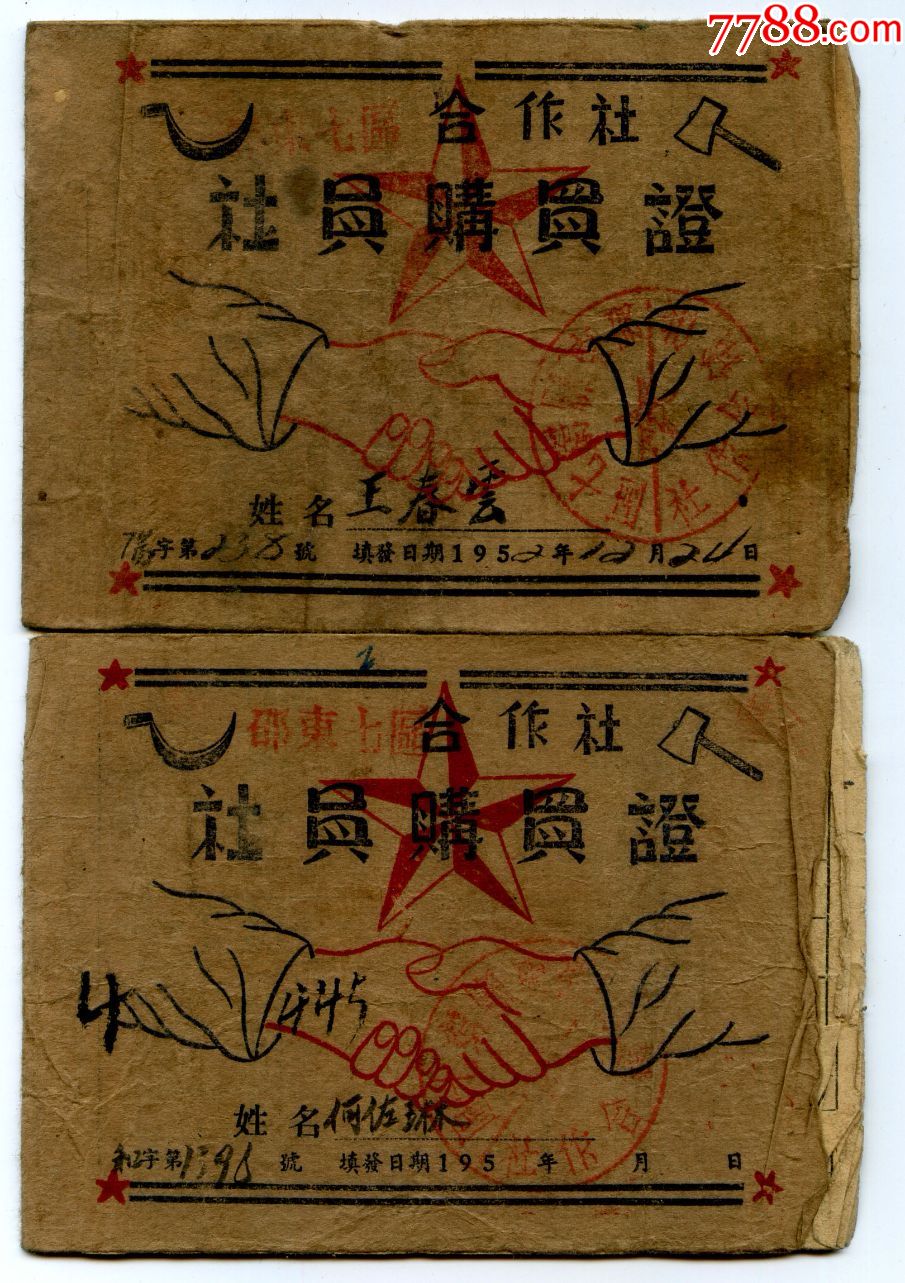 7788.com
東七區
合作社
社員購買證
姓名王春雲
字第238號 填發日期1952年12月24日
邵東七區
合作社
社員購買證
4
姓名何佐琳
字第1396號 填發日期195 年 月 日